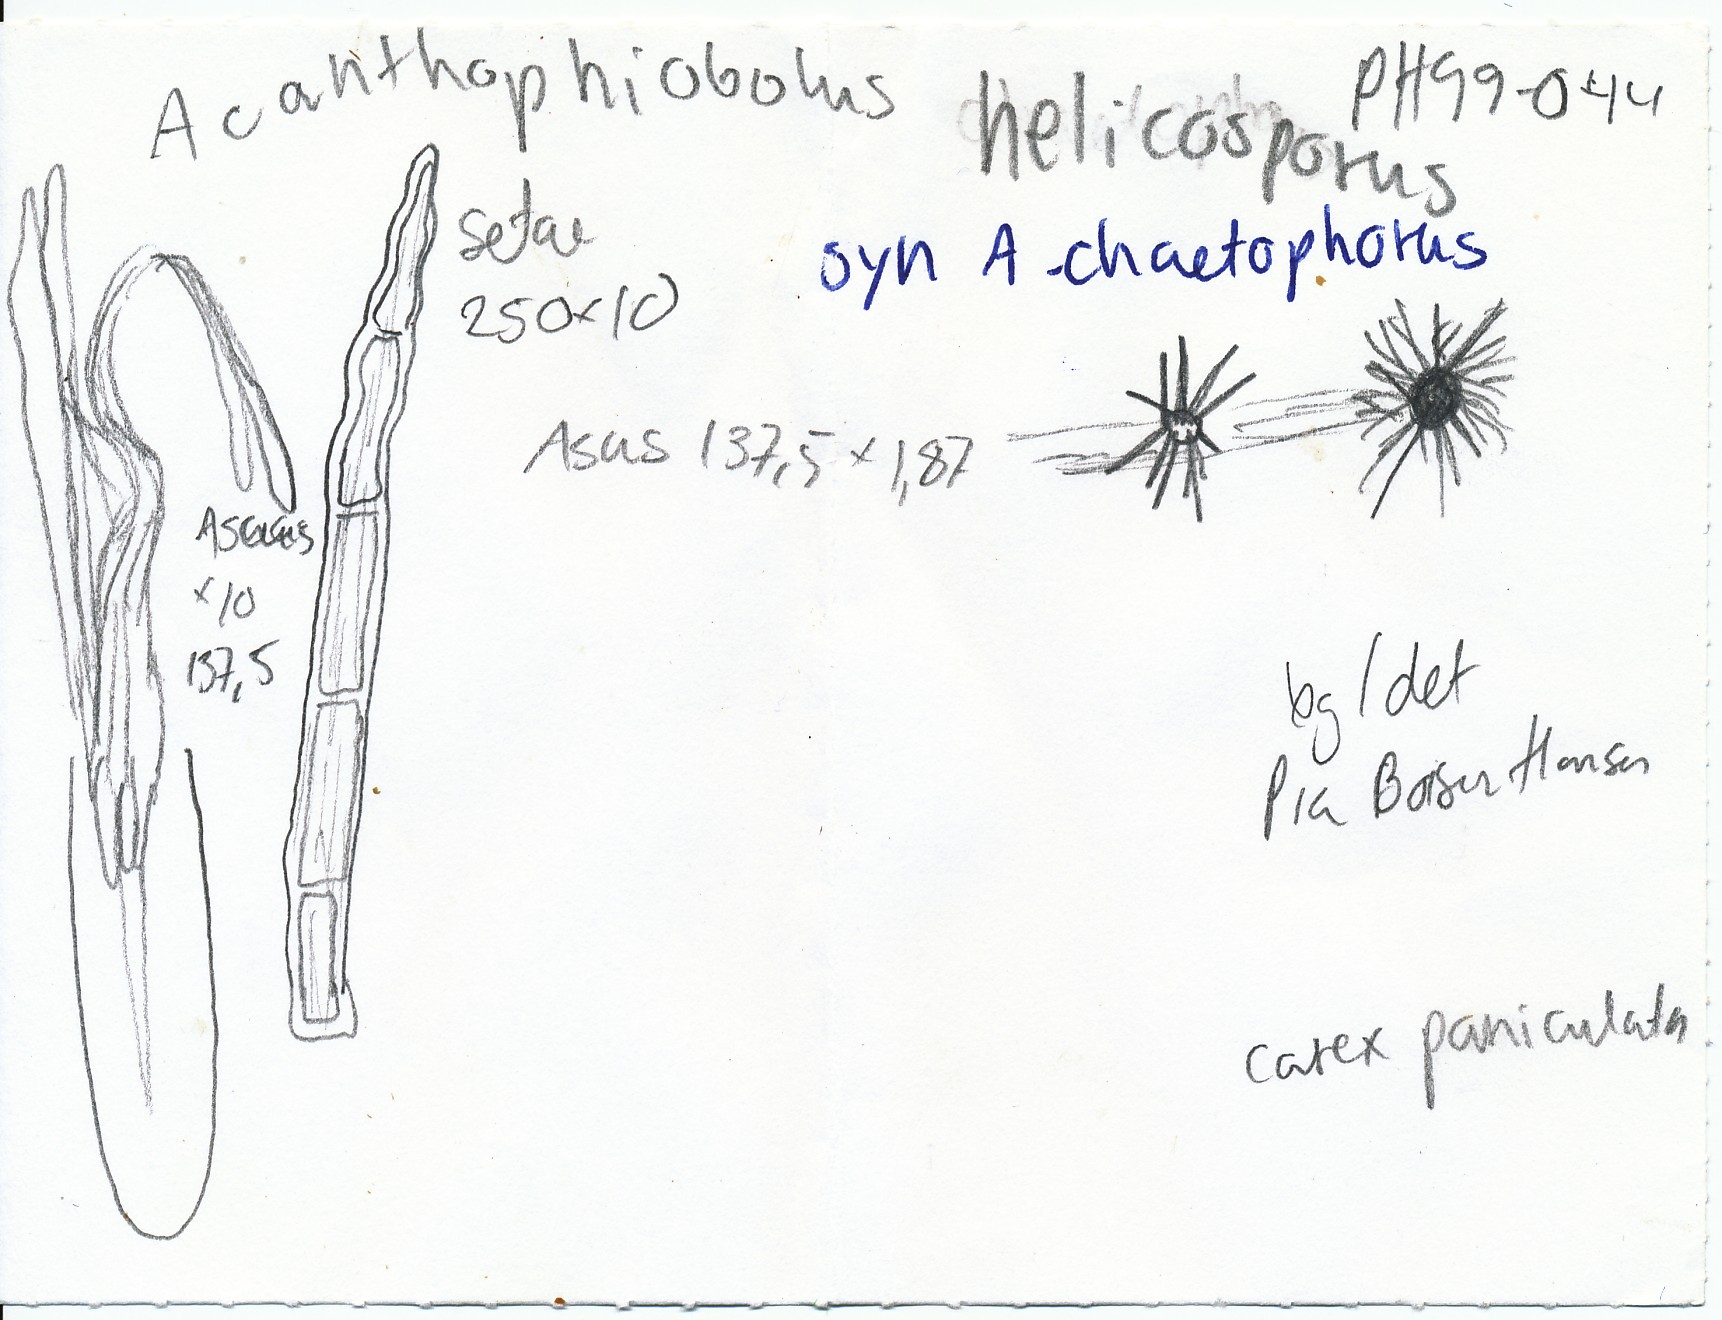 Acanthophiobolus helicosporus
PH99-044
syn A. chaetophorus
setae
250×10
Asus 137,5 × 1,87
Ascus
×10
137,5
bg/det
Pia Boisen Hansen
carex paniculata